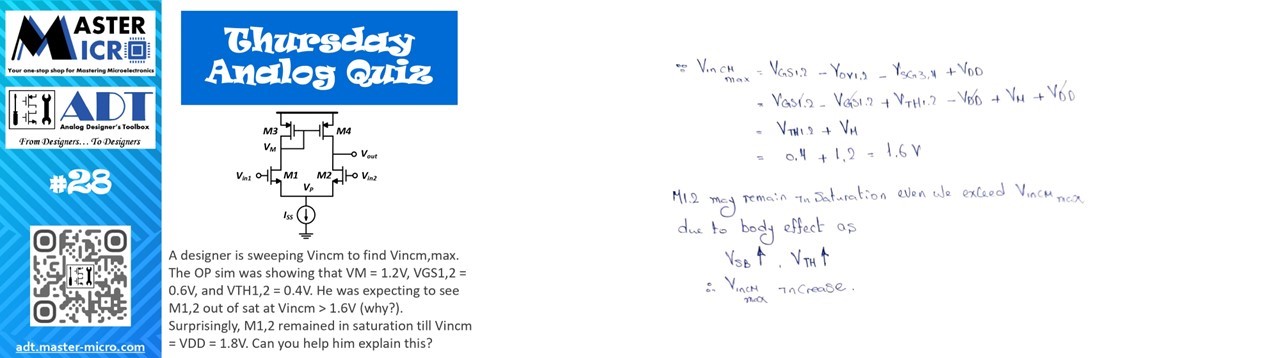 MASTER
MICRO
Your one-stop shop for Mastering Microelectronics
ADT
Analog Designer's Toolbox
From Designers... To Designers
#28
adt.master-micro.com
Thursday
Analog Quiz
M3
M4
VM
Vout
Vin1
M1
M2
Vin2
VP
ISS
A designer is sweeping Vincm to find Vincm,max.
The OP sim was showing that VM = 1.2V, VGS1,2 =
0.6V, and VTH1,2 = 0.4V. He was expecting to see
M1,2 out of sat at Vincm > 1.6V (why?).
Surprisingly, M1,2 remained in saturation till Vincm
= VDD = 1.8V. Can you help him explain this?
∵ VinCM max = VGS1,2 − VOV1,2 − VSG3,4 + VDD
= VGS1,2 − VGS1,2 + VTH1,2 − VDD + VM + VDD
= VTH1,2 + VM
= 0.4 + 1,2 = 1.6 V
M1,2 may remain in Saturation even we exceed VinCM max
due to body effect as
VSB ↑ , VTH ↑
∴ VinCM max increase.